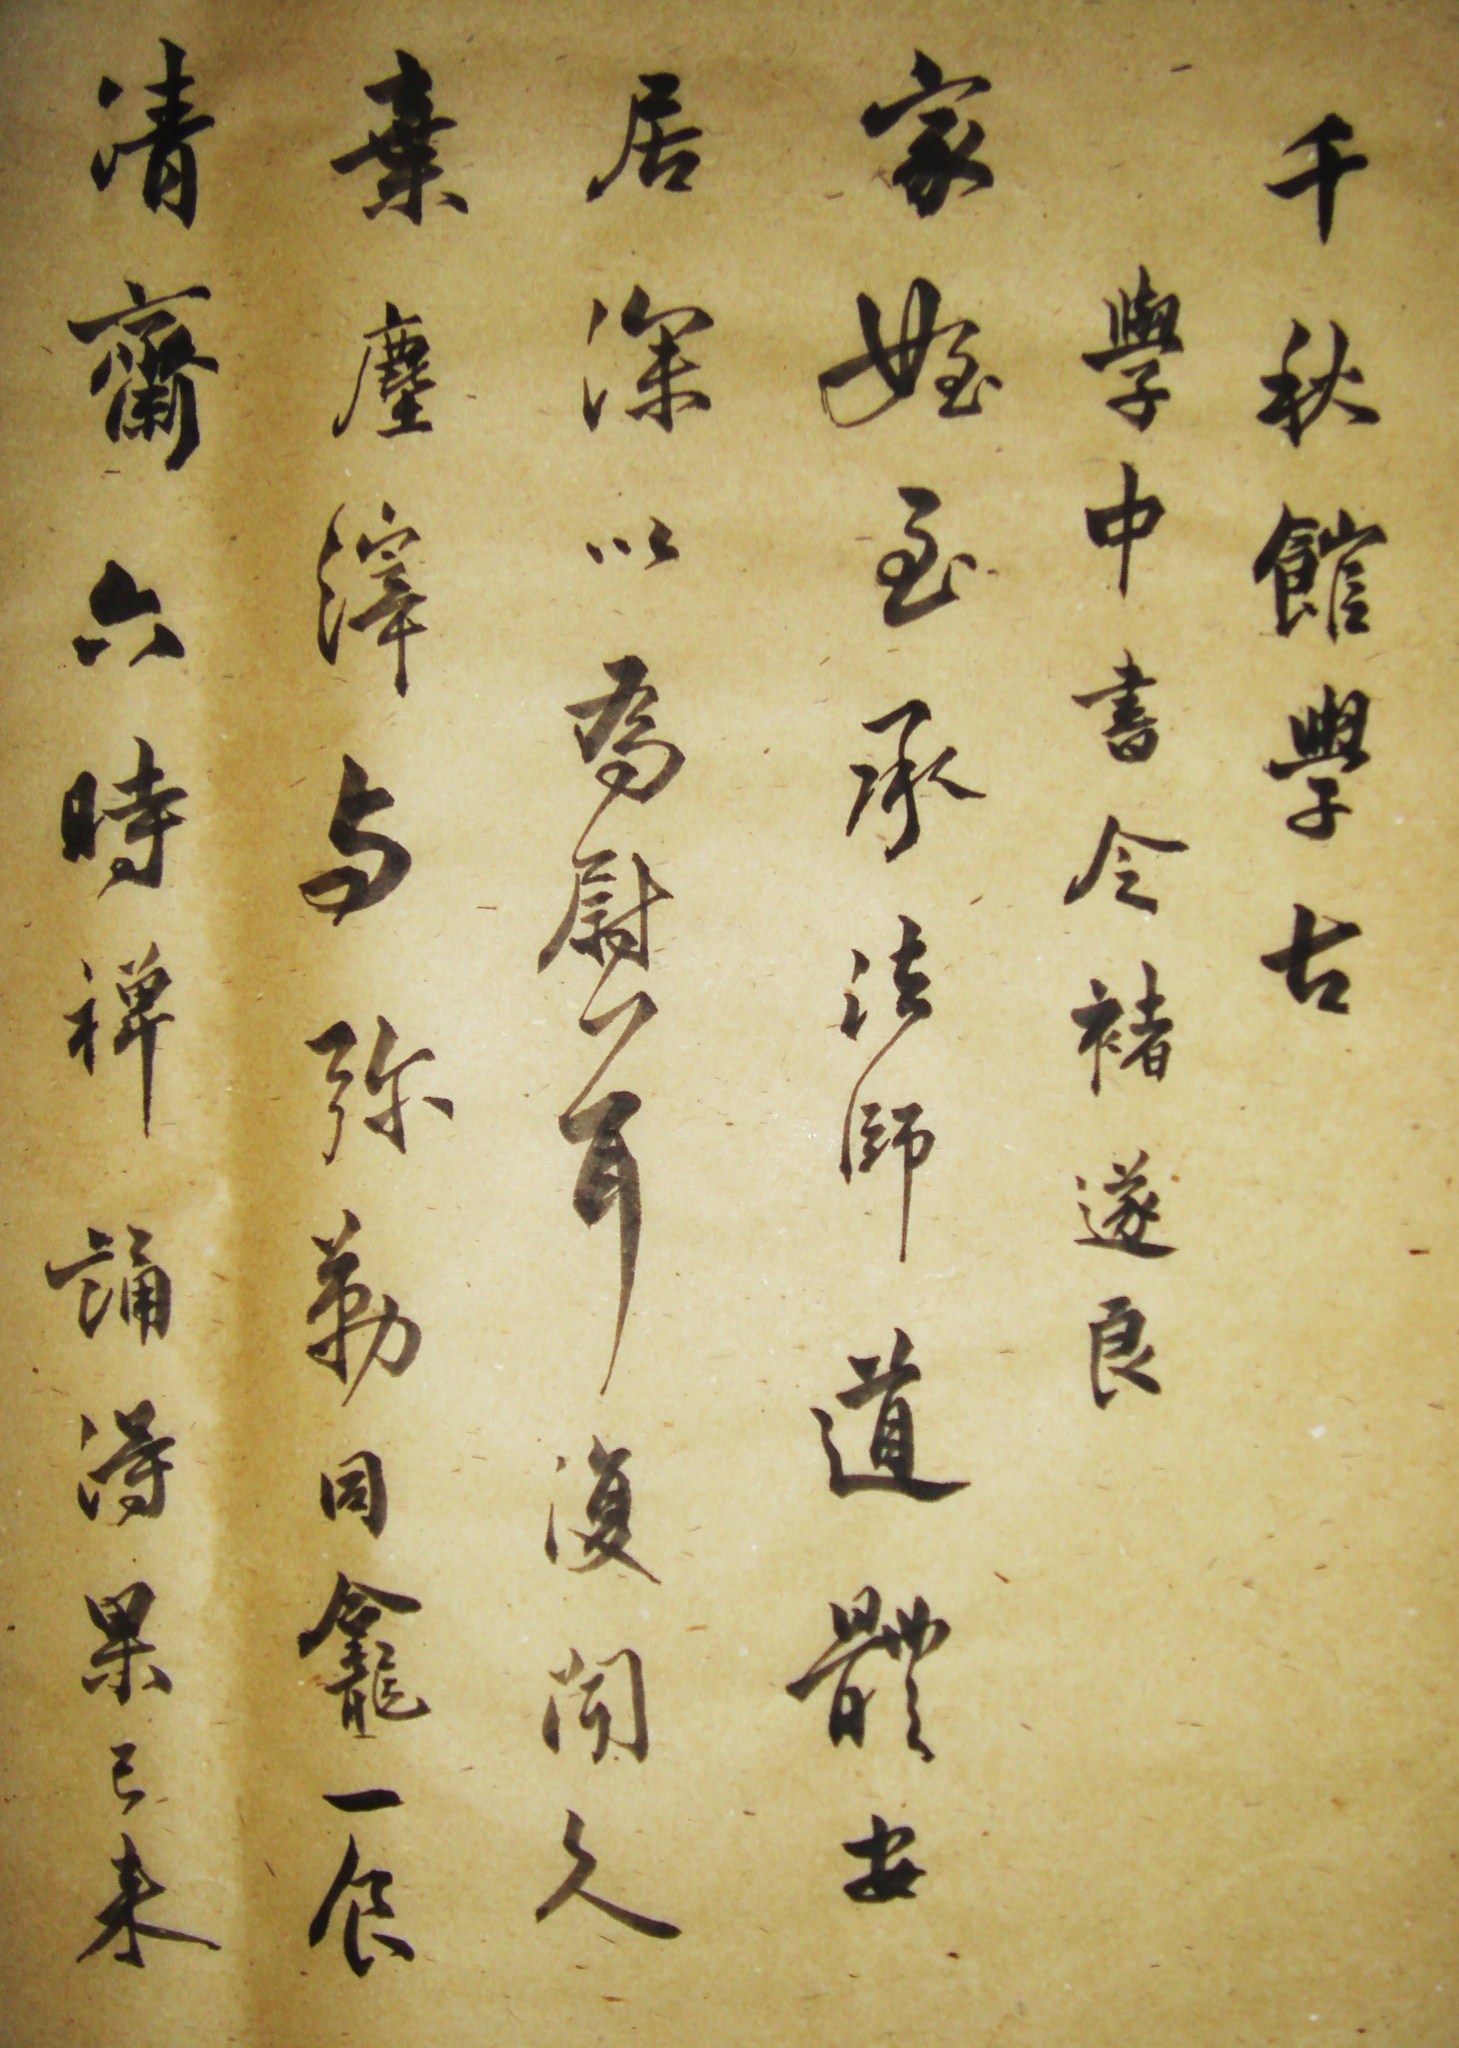 千秋館學古
學中書令褚遂良
家姪至承法師道體安
居深以為慰耳復聞久
棄塵滓与弥勒同龕一食
清齋六時禅誦得果已来